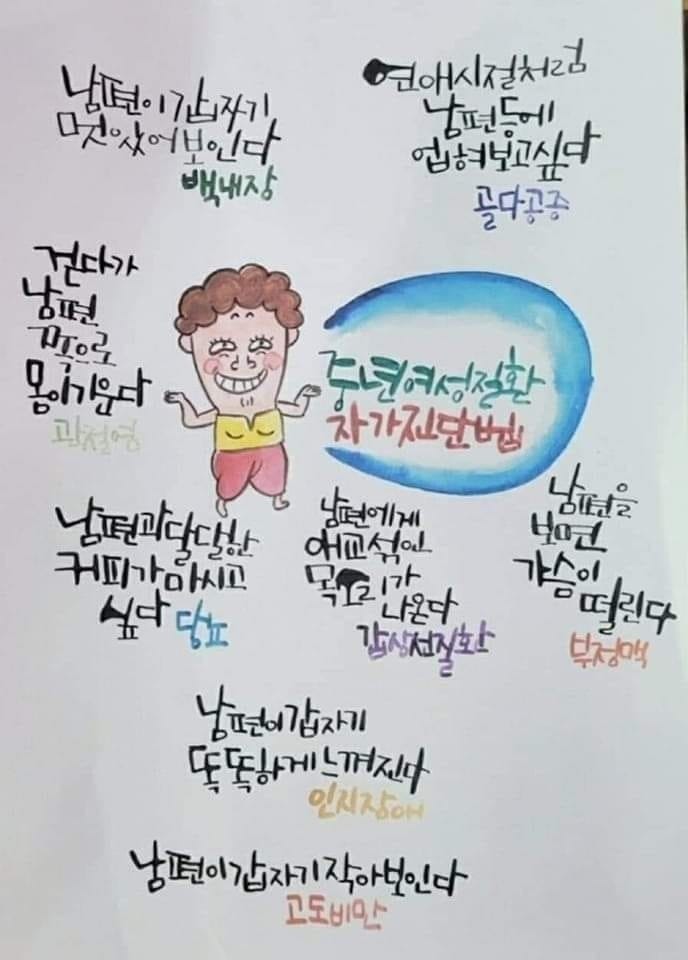 남편이 갑자기
멋있어보인다
백내장
연애시절처럼
남편등에
업혀보고싶다
골다공증
걷다가
남편
쪽으로
몸이기운다
관절염
중년여성질환
자가진단법
남편과달달한
커피가마시고
싶다 당뇨
남편에게
애교섞인
목소리가
나온다
갑상선질환
남편을
보면
가슴이
떨린다
부정맥
남편이갑자기
똑똑하게느껴진다
인지장애
남편이갑자기작아보인다
고도비만